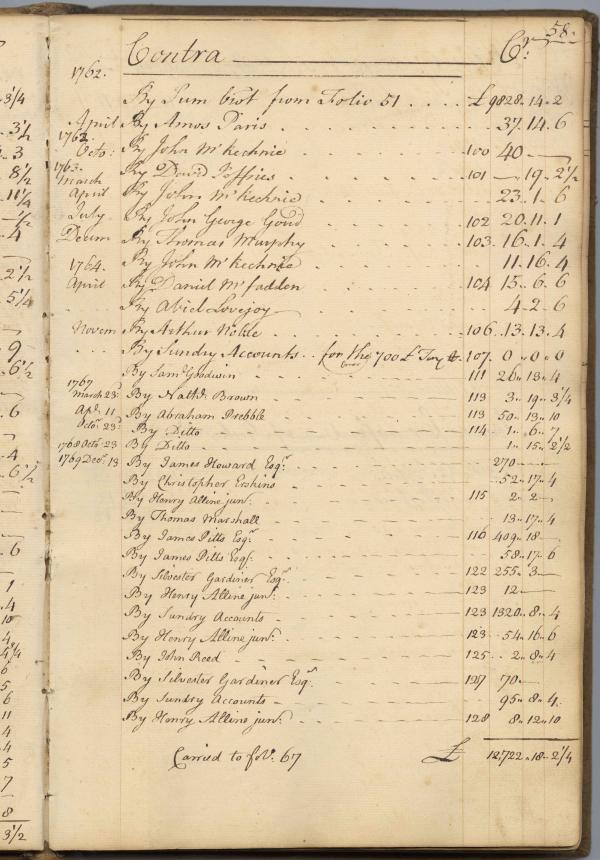 58.
Contra Cr.
1762.
By Sum brot from Folio 51 . . . . £9828..14..2
April By Amos Paris 37.14.6
1762. Octo: By John McKechnie 100 40 —
1763. March By David Jeffries 101 — 19..2 1/2
April By John McKechnie 23..1..6
July By John George Goud 102 20.11.1
Decem By Thomas Murphy 103. 16..1..4
1764. By John McKechnie 11.16.4
April By Daniel McFadden 104 15..6..6
By Abiel Lovejoy 4..2..6
Novem By Arthur Noble 106. .13.13.4
By Sundry Accounts . . for the 700£ Tax 107. 0..0..0
By Saml. Goodwin 111 26..13..4
1767 March 23d By Nathl. Brown 113 3..19..3 1/4
Apl. 11 By Abraham Preble 113 50..13..10
Octo. 23d By Ditto 114 1..6..7
1768 Octo. 23 By Ditto 1..15..2 1/2
1769 Decr. 13 By James Howard Esqr. 270 —
By Christopher Erskins .52..17..4
By Henry Alline junr. 115 2..2 —
By Thomas Marshall 13..17..4
By James Pitts Esqr. 116 409..18 —
By James Pitts Esqr. 58..17..6
By Silvester Gardiner Esqr. 122 255..3 —
By Henry Alline junr. 123 12 —
By Sundry Accounts 123 1320..8..4
By Henry Alline junr. 123. .54..16..6
By John Reed 125. .2..8..4
By Silvester Gardiner Esqr. 127 70 —
By Sundry Accounts 95..8..4.
By Henry Alline junr. 128 8..12..10
Carried to fol. 67 £ 12,722..18..2 1/4